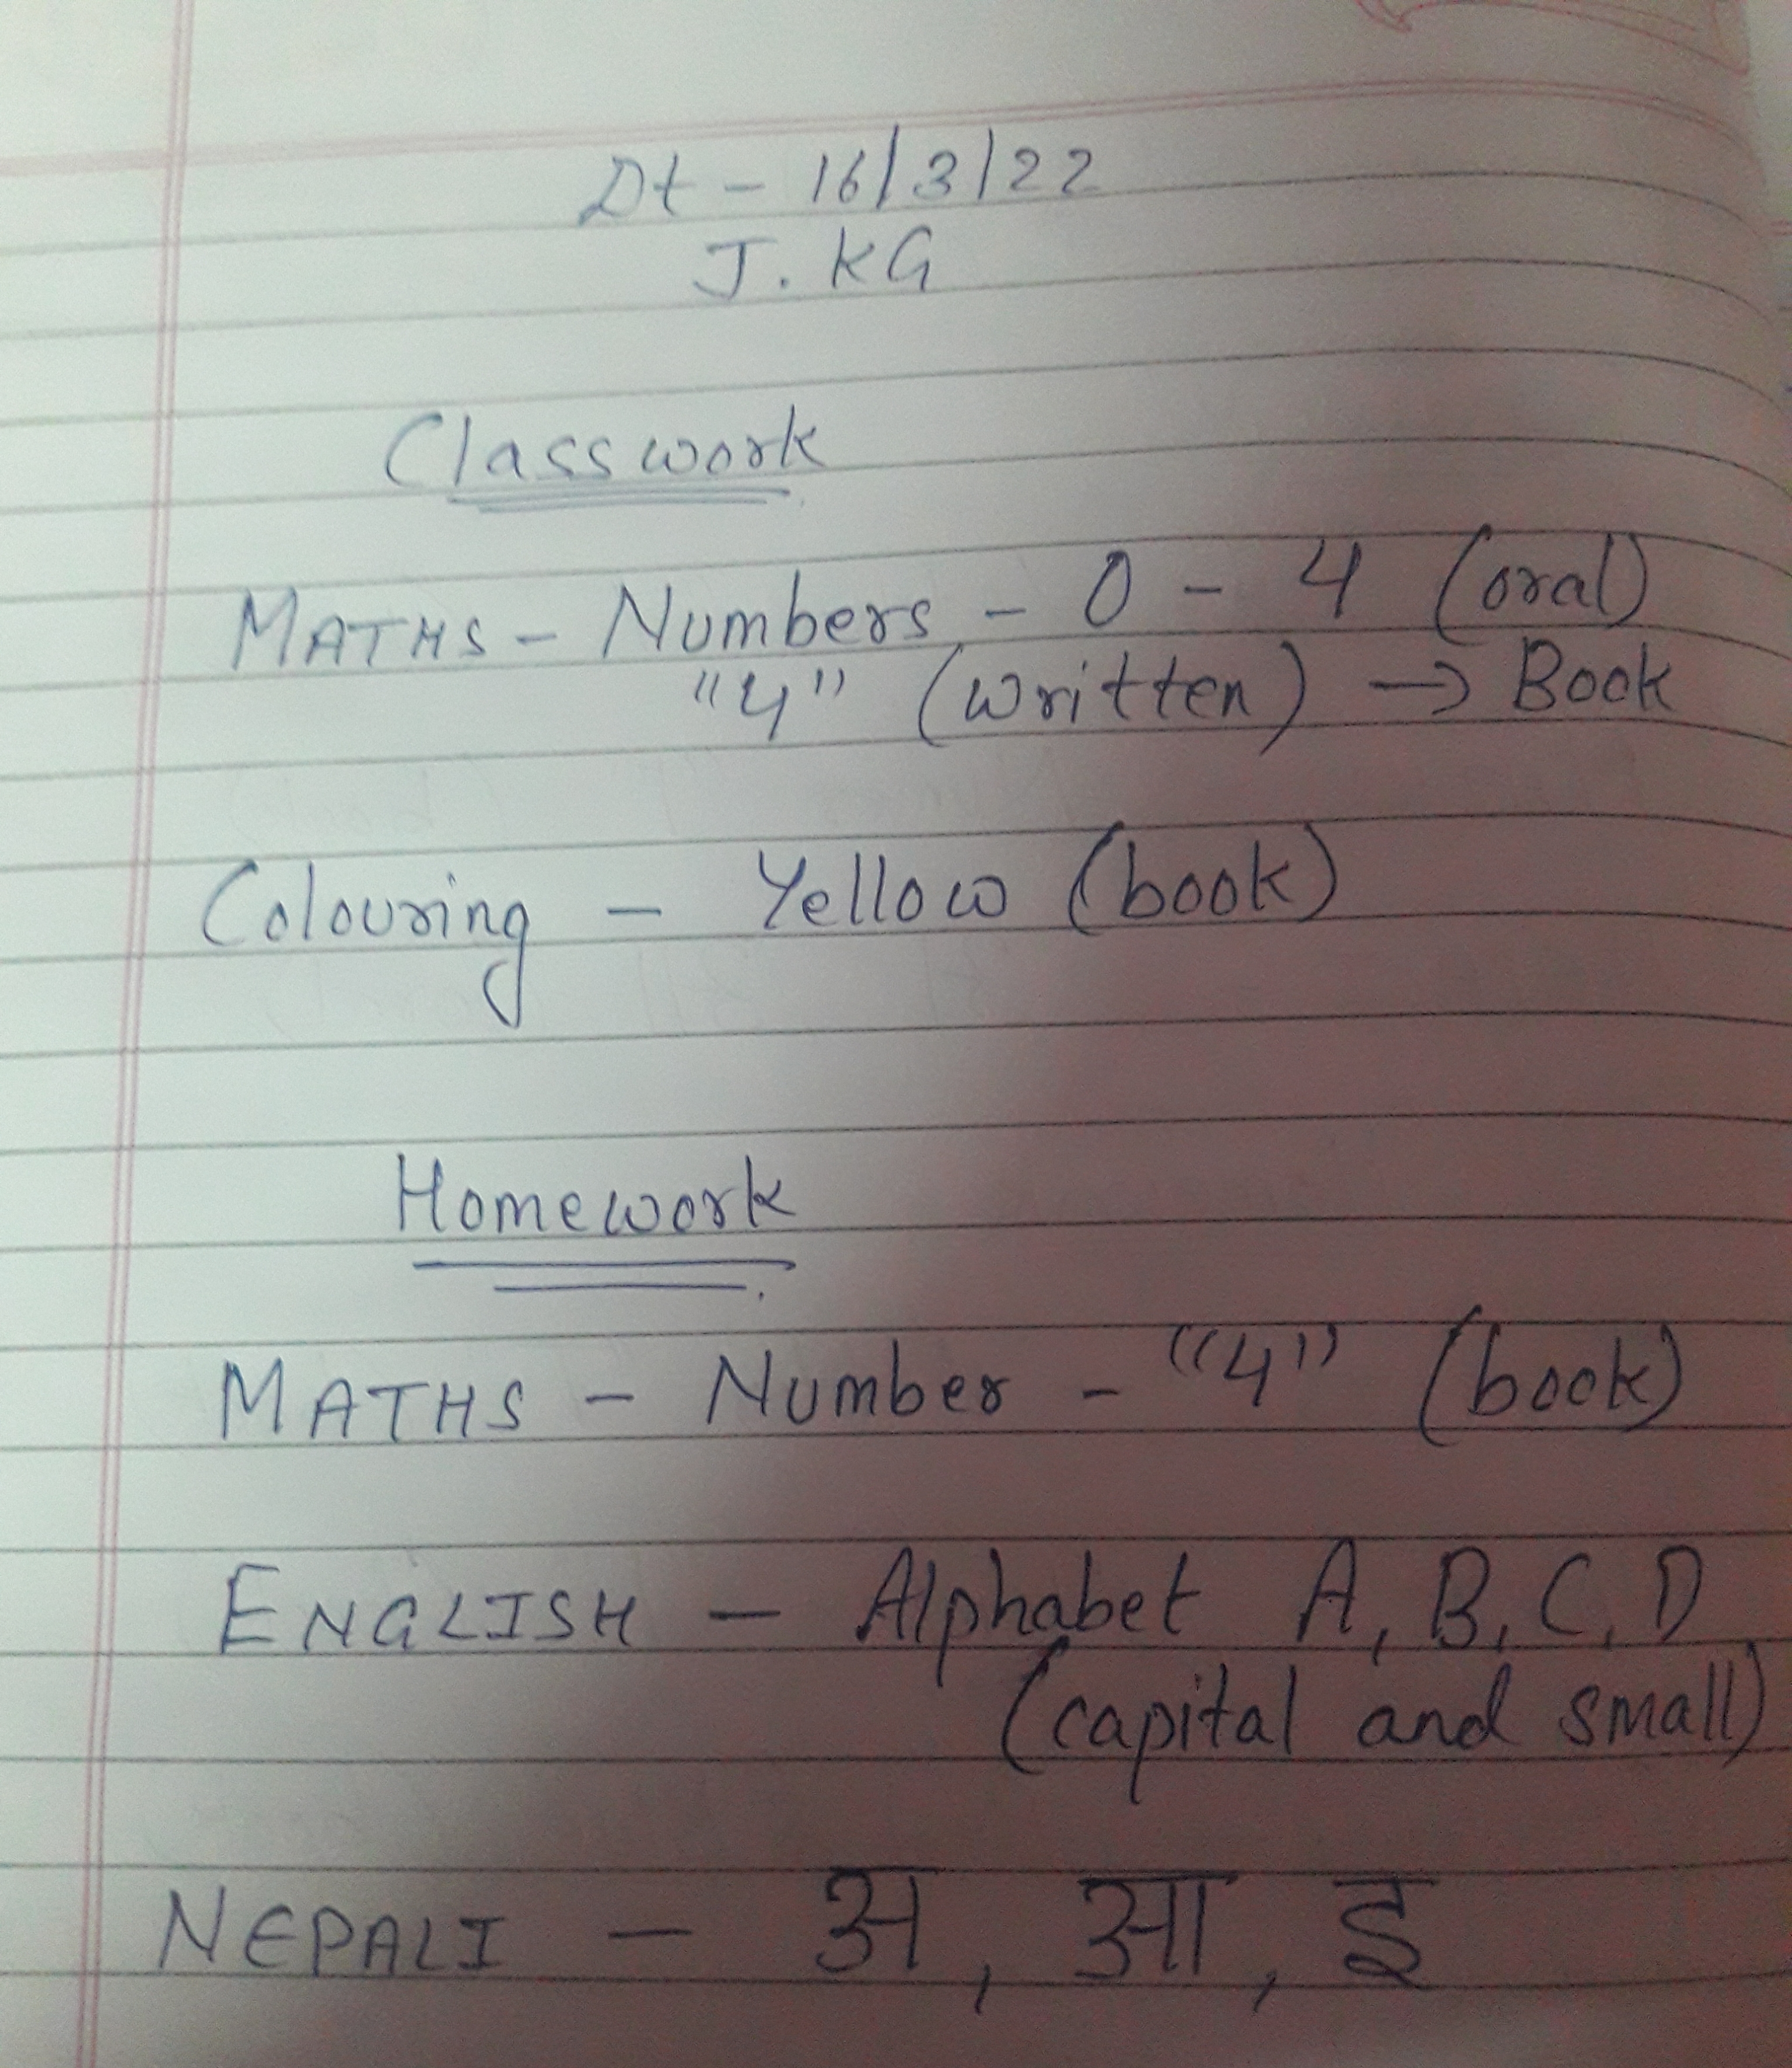 Dt - 16/3/22
J. KG
Classwork
MATHS - Numbers - 0 - 4 (oral)
"4" (written) → Book
Colouring - Yellow (book)
Homework
MATHS - Number - "4" (book)
ENGLISH - Alphabet A, B, C, D
(capital and small)
NEPALI - अ, आ, इ